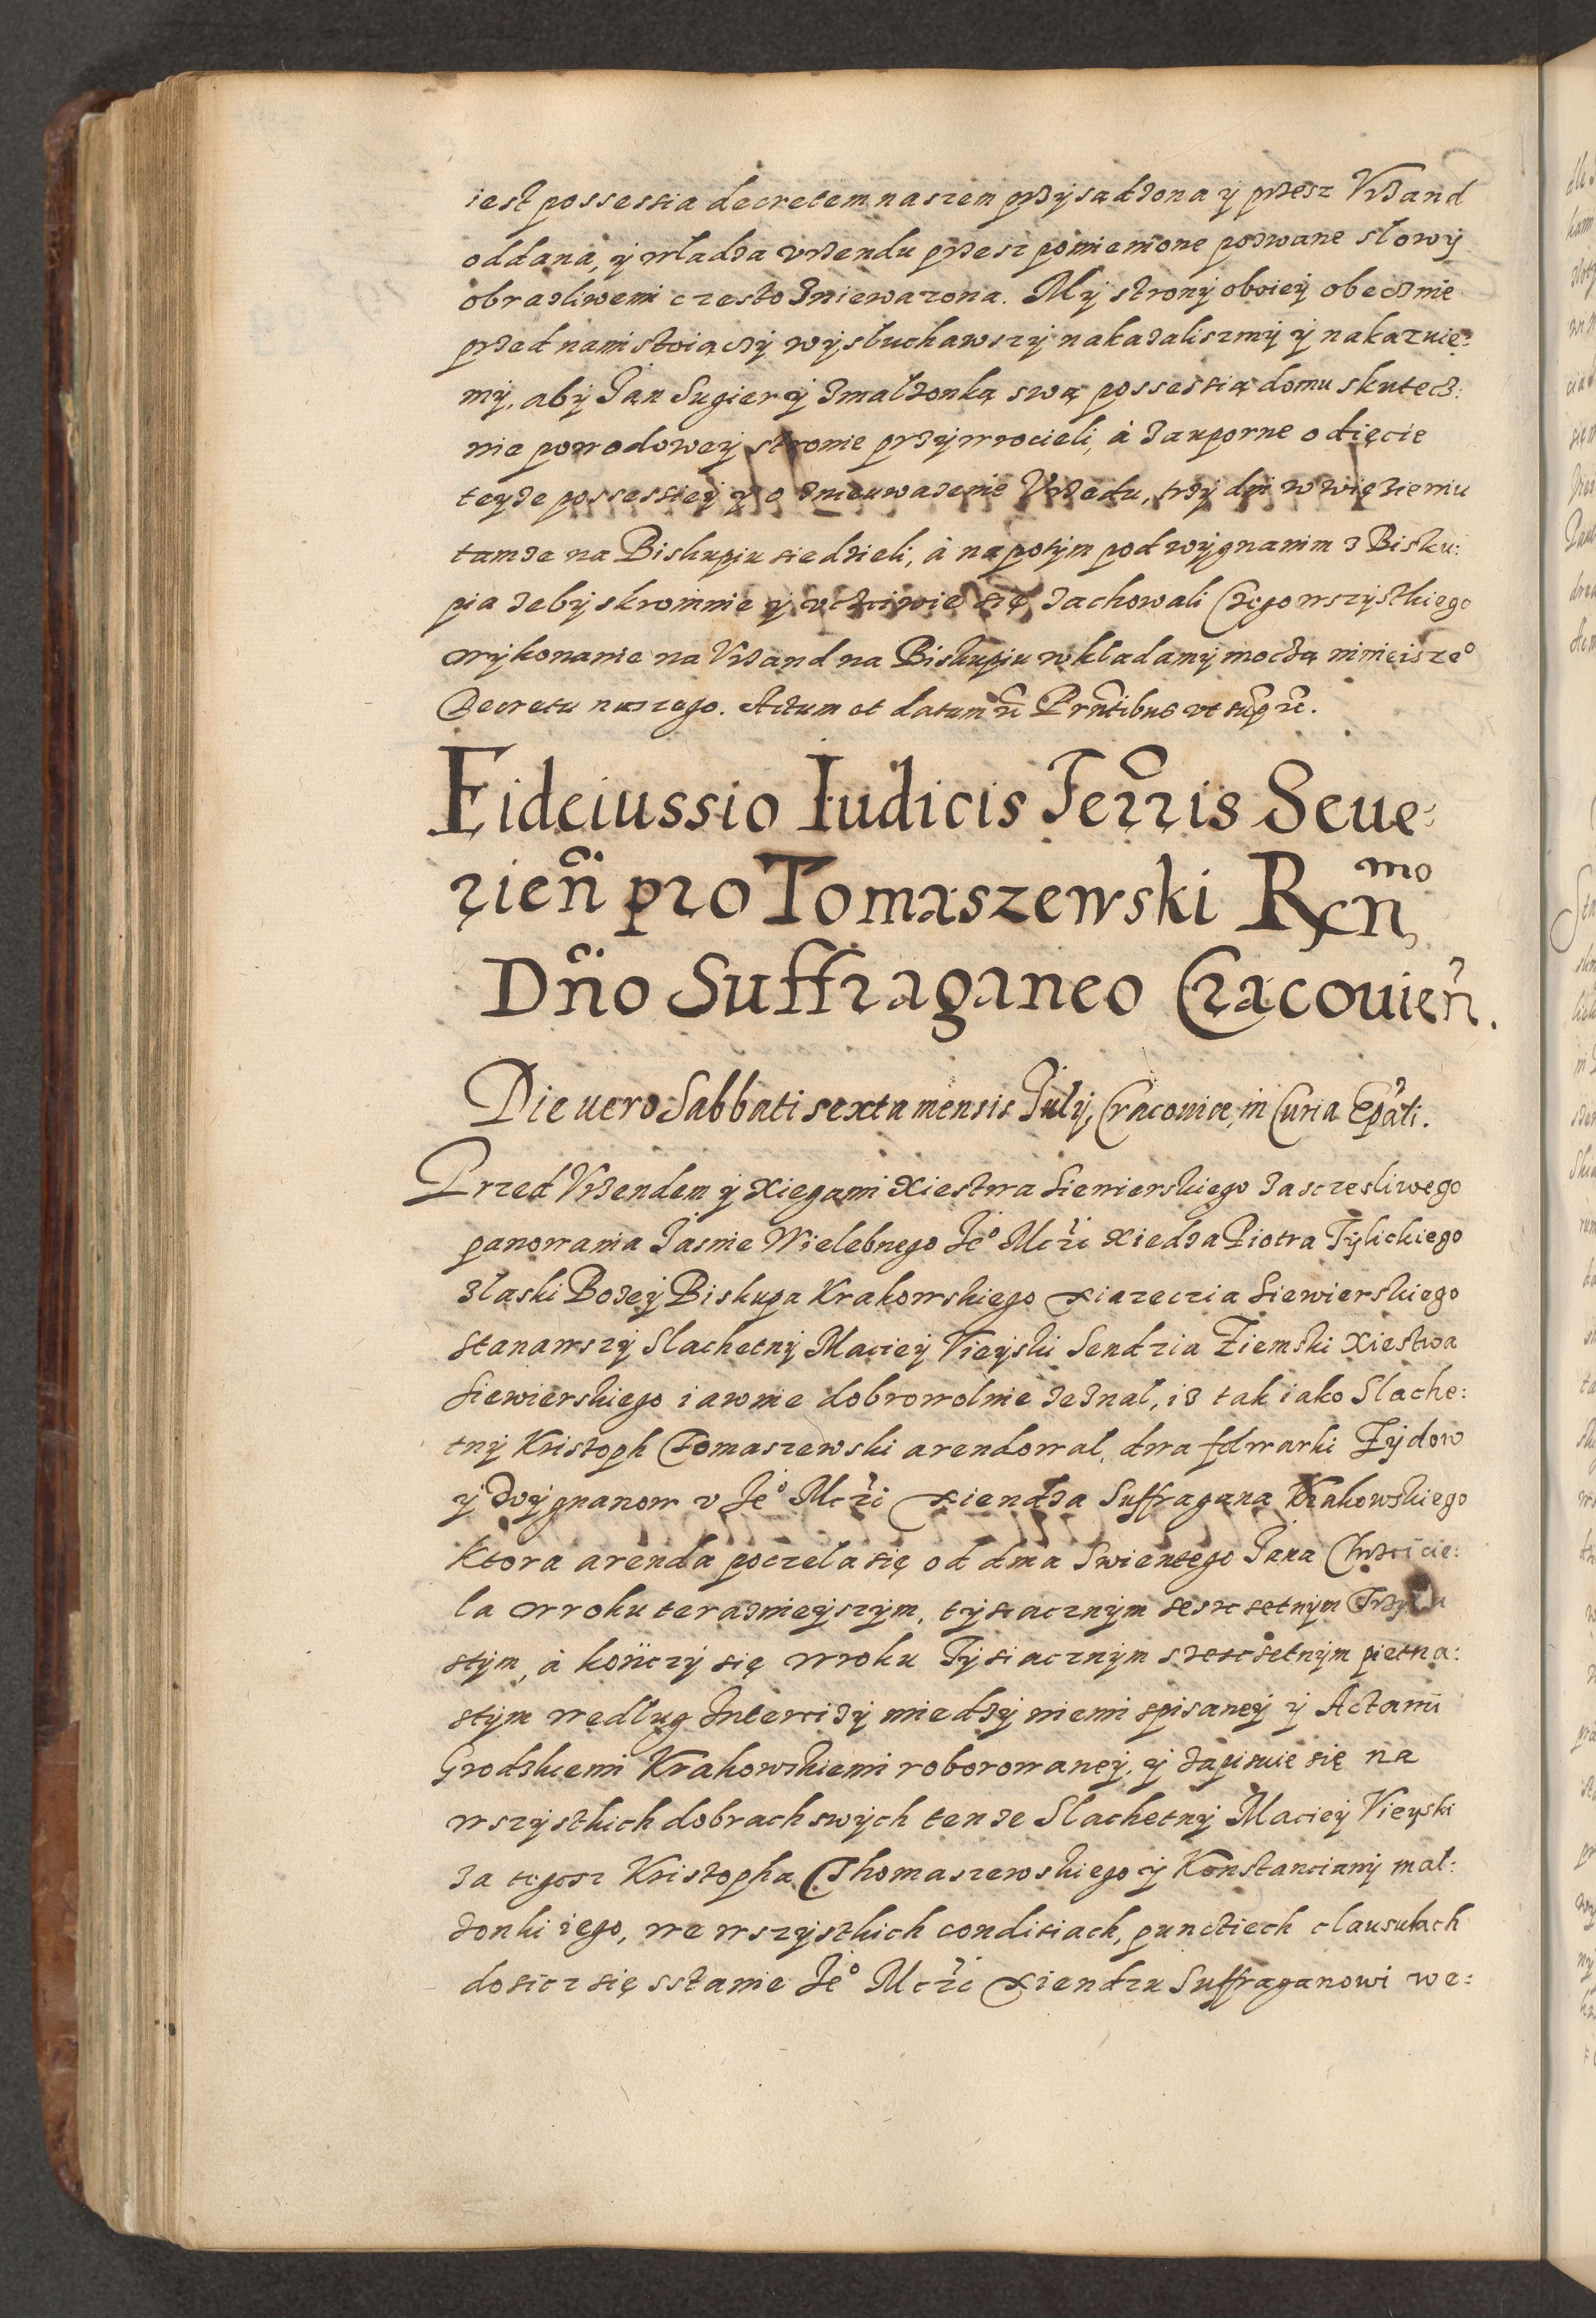 iest possessia decretem naszem przysądzona ÿ przesz Vrzand
oddana, ÿ władza vrzendu przesz pomienione pozwane słowÿ
obrazliwemi czesto znieważona. Mÿ stronÿ oboieÿ obecznie
przed nami stoiączÿ wÿsłuchawszÿ nakazaliszmÿ ÿ nakazuię:
mÿ, abÿ Jan Sugier ÿ zmałzonką swą possessią domu skutecz:
nie powodoweÿ stronie przÿwrocieli, à za uporne odięcie
teÿze possessieÿ ÿ o znieuwazenie Vrzedu, trzÿ dni w więzieniu
tamze na Biskupiu siedzieli, à napotÿm pod wÿgnanim z Bisku:
pia zebÿ skromnie ÿ vcziwie się zachowali Czego wszÿstkiego
wÿkonanie na Vrzand na Biskupiu wkładamÿ moczą ninieisze°
Decretu naszego. Actum et datum rc Prntibus vt supr rc.
Fideiussio Iudicis Terris Seue:
rien pro Tomaszewski Rxn mo
Dno Suffraganeo Cracouien.
Die uero Sabbati sexta mensis Julÿ, Cracouiæ, in Curia Epali.
Przed Vrzendem ÿ Xiegami Xiestwa Siewierskiego za sczesliwego
panowania Jasnie Wielebnego Je° Mczi Xiedza Piotra Tÿlickiego
złaski Bozeÿ Biskupa Krakowskiego xiazeczia Siewierskiego
stanawszÿ Slachetnÿ Macieÿ Vieÿski Sendzia Ziemski Xiestwa
Siewierskiego iawnie dobrowolnie zeznal, iz tak iako Slache:
tnÿ Kristoph Tomaszewski arendowal, dwa folwarki Zÿdow
ÿ Wÿgnanow v Je° Mczi xiendza Suffragana Krakowskiego
Ktora arenda poczela się od dnia Swientego Jana Chrzcicie:
la wroku teraznieÿszÿm, tÿsiacznÿm sescsetnÿm
stÿm, à kończÿ się wroku Tÿsiacznÿm szescsetnÿm pietna:
stÿm według Intercizÿ miedzÿ niemi spisaneÿ ÿ Actami
Grodzkiemi Krakowskiemi roborowaneÿ, ÿ zapisuie się na
wszÿstkich dobrach swÿch tenze Slachetnÿ Macieÿ Vieÿski
za tegosz Kristopha Thomaszewskiego ÿ Konstancianÿ mal:
zonki iego, we wszÿstkich conditiach, punctiech clausulach
dosicz się sstanie Je° Mczi xiendzu Suffraganowi we: